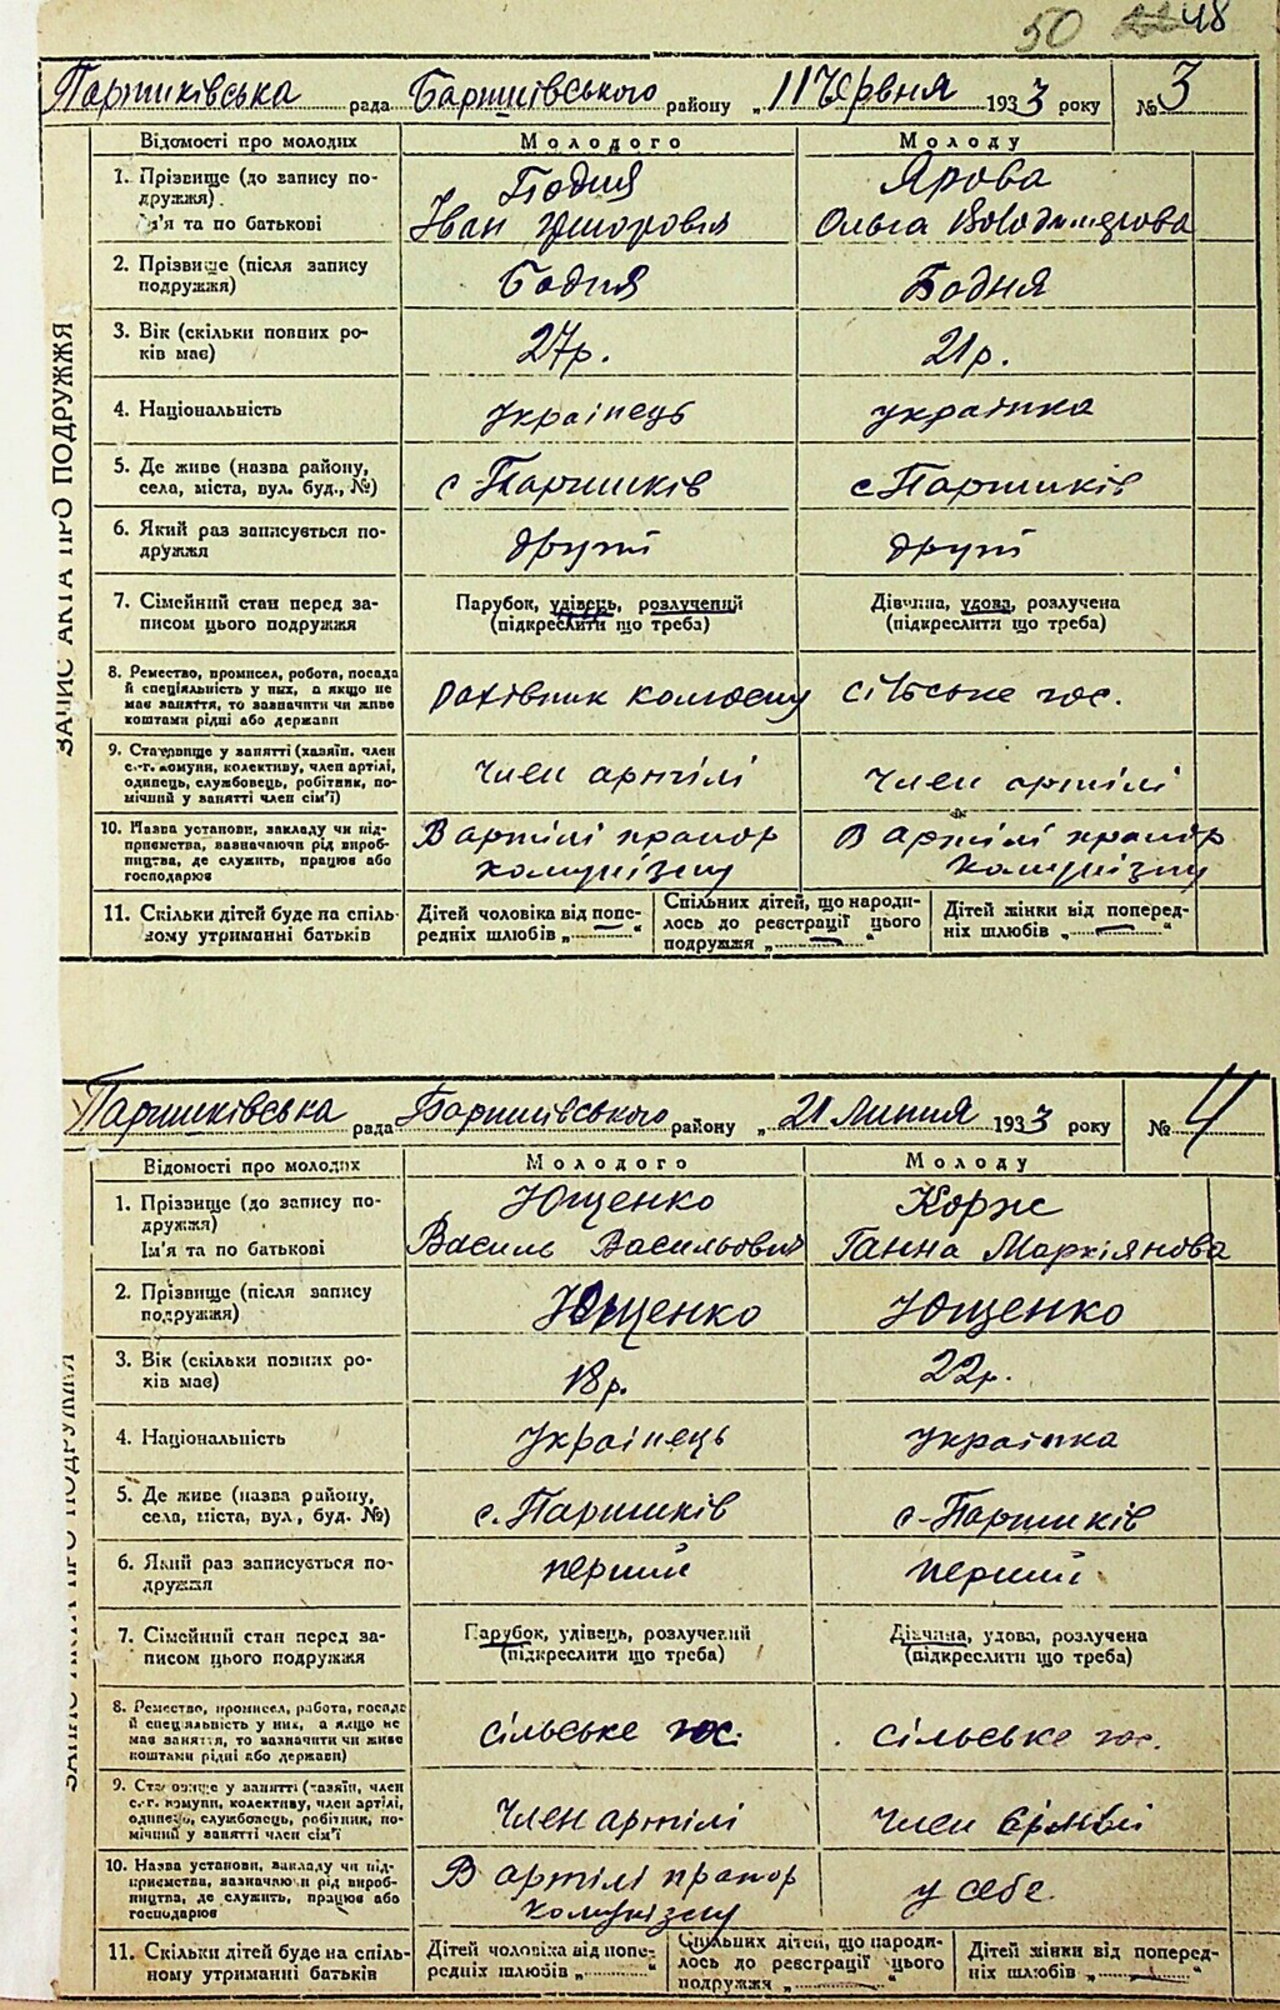 50 48
Паришківська рада Баришівського району „11 Червня 1933 року № 3
Відомості про молодих Молодого Молоду
1. Прізвище (до запису по- Бодня Ярова
дружжя).
Ім'я та по батькові Іван Григорович Ольга Володимирова
2. Прізвище (після запису Бодня Бодня
подружжя)
3. Вік (скільки повних ро- 27р. 21р.
ків має)
4. Національність Українець українка
5. Де живе (назва району, с Паришків с Паришків
села, міста, вул. буд., №)
6. Який раз записується по- другий другий
дружжя
7. Сімейний стан перед за- Парубок, удівець, розлучений Дівчина, удова, розлучена
писом цього подружжя (підкреслити що треба) (підкреслити що треба)
8. Ремество, промисел, робота, посада
й спеціяльність у них, а якщо не Рахівник колгоспу сільське гос.
має заняття, то зазначити чи живе
коштами рідні або держави
9. Становище у занятті (хазяїн, член
с.-г. комуни, колективу, член артілі, Член артілі Член артілі
одинець, службовець, робітник, по-
мічний у занятті член сім'ї)
10. Назва установи, закладу чи під- В артілі прапор В артілі прапор
приємства, вазначаючи рід вироб- комунізму комунізму
ництва, де служить, працює або
господарює
11. Скільки дітей буде на спіль- Дітей чоловіка від попе- Спільних дітей, що народи- Дітей жінки від поперед-
ному утриманні батьків редніх шлюбів „—“ лось до реєстрації цього ніх шлюбів „—“
подружжя „—“
ЗАПИС АКТА ПРО ПОДРУЖЖЯ
Паришківська рада Баришівського району „21 Липня 1933 року № 4
Відомості про молодих Молодого Молоду
1. Прізвище (до запису по- Ющенко Корж
дружжя)
Ім'я та по батькові Василь Васильович Ганна Маркіянова
2. Прізвище (після запису Ющенко Ющенко
подружжя)
3. Вік (скільки повних ро- 18р. 22р.
ків має)
4. Національність Українець українка
5. Де живе (назва району, с. Паришків с. Паришків
села, міста, вул., буд. №)
6. Який раз записується по- перший перший
дружжя
7. Сімейний стан перед за- Парубок, удівець, розлучений Дівчина, удова, розлучена
писом цього подружжя (підкреслити що треба) (підкреслити що треба)
8. Ремество, промисел, робота, посада
й спеціяльність у них, а якщо не сільське гос. сільське гос.
має заняття, то зазначити чи живе
коштами рідні або держави)
9. Становище у занятті (хазяїн, член
с.-г. комуни, колективу, член артілі, Член артілі Член артілі
одинець, службовець, робітник, по-
мічний у занятті член сім'ї
10. Назва установи, закладу чи під- В артілі прапор у себе
приємства, зазначаючи рід вироб- комунізму
ництва, де служить, працює або
господарює
11. Скільки дітей буде на спіль- Дітей чоловіка від попе- Спільних дітей, що народи- Дітей жінки від поперед-
ному утриманні батьків редніх шлюбів „“ лось до реєстрації цього ніх шлюбів „—“
подружжя „—“
ЗАПИС АКТА ПРО ПОДРУЖЖЯ